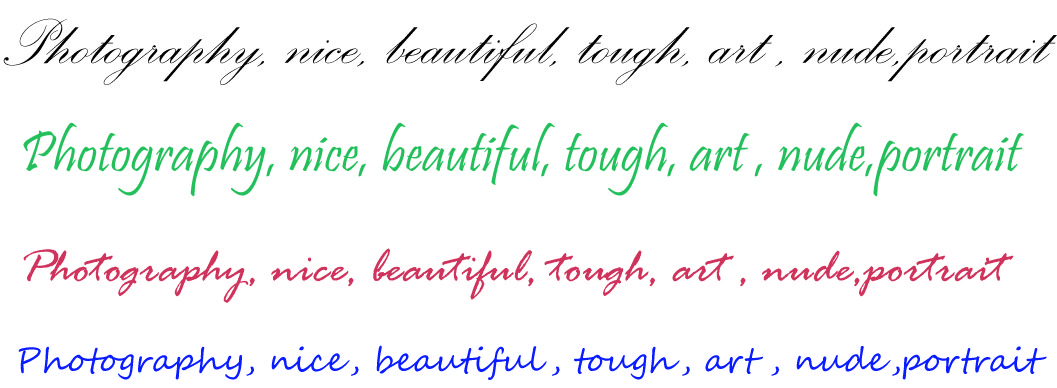 Photography, nice, beautiful, tough, art , nude,portrait
Photography, nice, beautiful, tough, art , nude,portrait
Photography, nice, beautiful, tough, art , nude,portrait
Photography, nice, beautiful, tough, art , nude,portrait